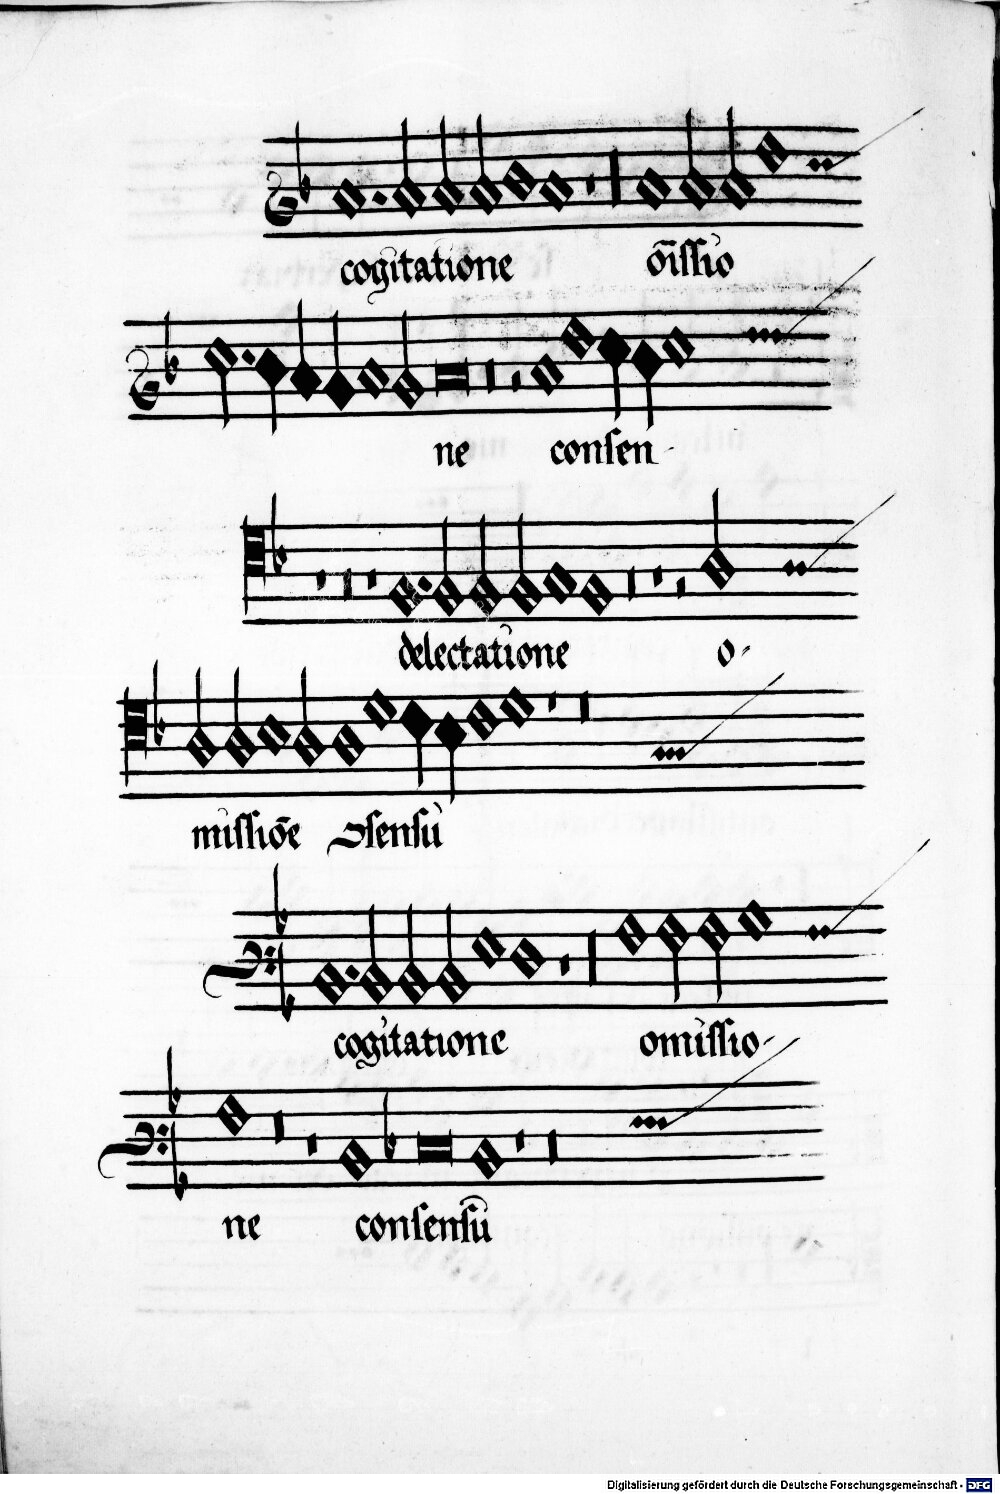 cogitatione õissio
ne consen-
delectatione o-
missiõe ꝯsensu
cogitatione omissio-
ne consensũ
Digitalisierung gefördert durch die Deutsche Forschungsgemeinschaft - DFG